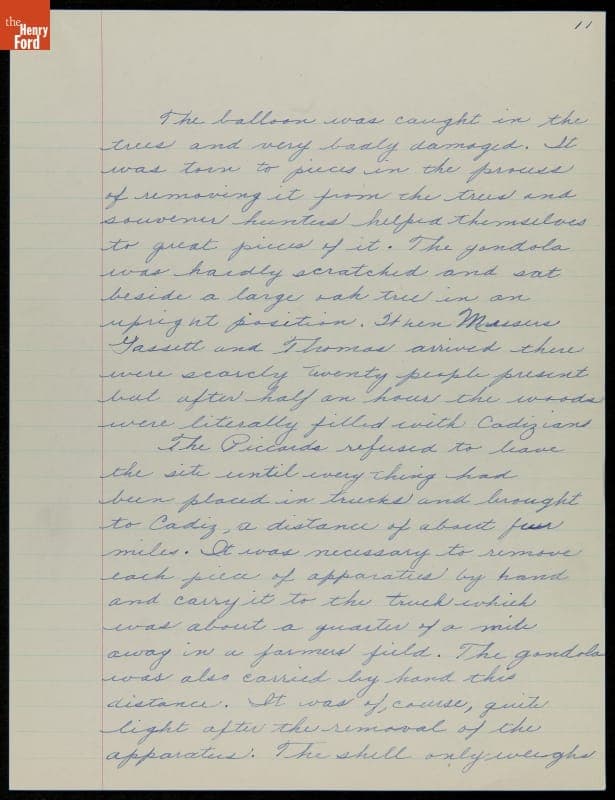 the
Henry
Ford
11
The balloon was caught in the
trees and very badly damaged. It
was torn to pieces in the process
of removing it from the trees and
souvener hunters helped themselves
to great pieces of it. The gondola
was hardly scratched and sat
beside a large oak tree in an
upright position. When Messers
Fassett and Thomas arrived there
were scarcly twenty people present
but after half an hour the woods
were literally filled with Cadizians
The Piccards refused to leave
the site until everything had
been placed in trucks and brought
to Cadiz, a distance of about four
miles. It was necessary to remove
each piece of apparatus by hand
and carry it to the truck which
was about a quarter of a mile
away in a farmers field. The gondola
was also carried by hand this
distance. It was of, course, quite
light after the removal of the
apparatus. The shell only weighs